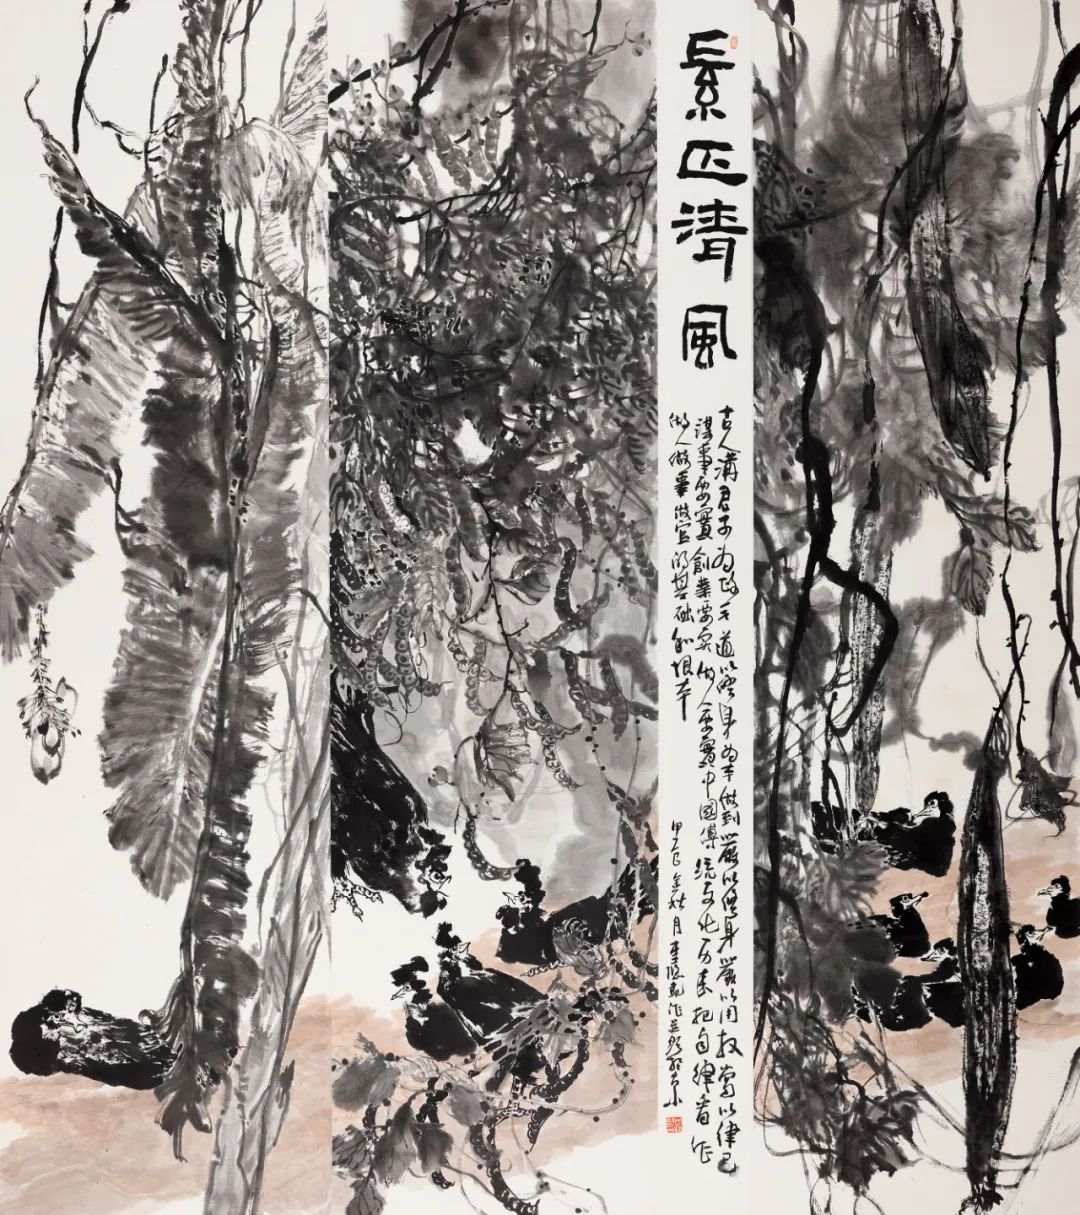 素正清風
古人講君子为政之道以修身为本做到嚴以修身嚴以用权嚴以律己
謀事要實創業要实做人要實中國傳統文化历来把自律看作
做人做事做官的基础和根本
甲午年金秋月李作並題